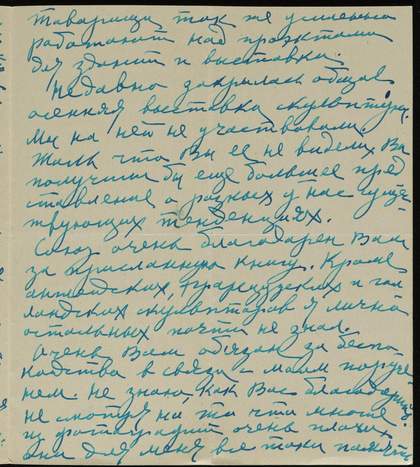 товарищи так же усиленно
работают над проэктами
для зданий и выставки.
Недавно закрылась общая
осенняя выставка скульптуры.
Мы на ней не участвовали.
Жаль что Вы ее не видели Вы
получили бы еще большее пред
ставление о разных у нас суще-
ствующих тенденциях.
Союз очень благодарен Вам
за присланную книгу. Кроме
английских, французских и гол
ландских скульпторов я лично
остальных почти не знал.
Очень Вам обязан за беспо
койства в связи с моим поруче
нием. Не знаю, как Вас благодарить
не смотря на то что многие
из фотографий очень плохи,
они для меня все таки